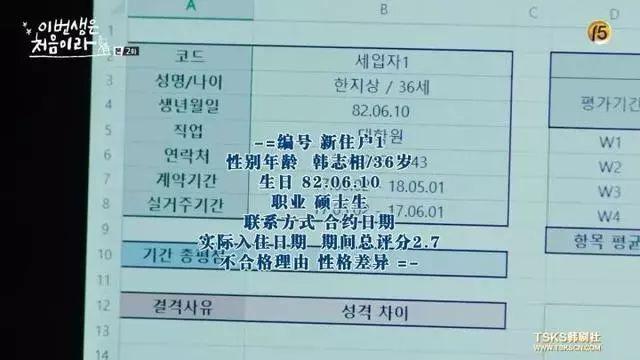 이번생은
처음이라
2회
tvN
A B C D
2 코드 세입자1
3 성명/나이 한지상 / 36세
4 생년월일 82.06.10 평가기간
5 직업 대학원
6 연락처 43 W1
7 계약기간 18.05.01 W2
8 실거주기간 17.06.01 W3
W4
10 기간 총평점 항목 평균
12 결격사유 성격 차이
-=编号 新住户1
性别年龄 韩志相/36岁
生日 82.06.10
职业 硕士生
联系方式 合约日期
实际入住日期 期间总评分2.7
不合格理由 性格差异 =-
TSKS韩剧社
WWW.TSKSCN.COM